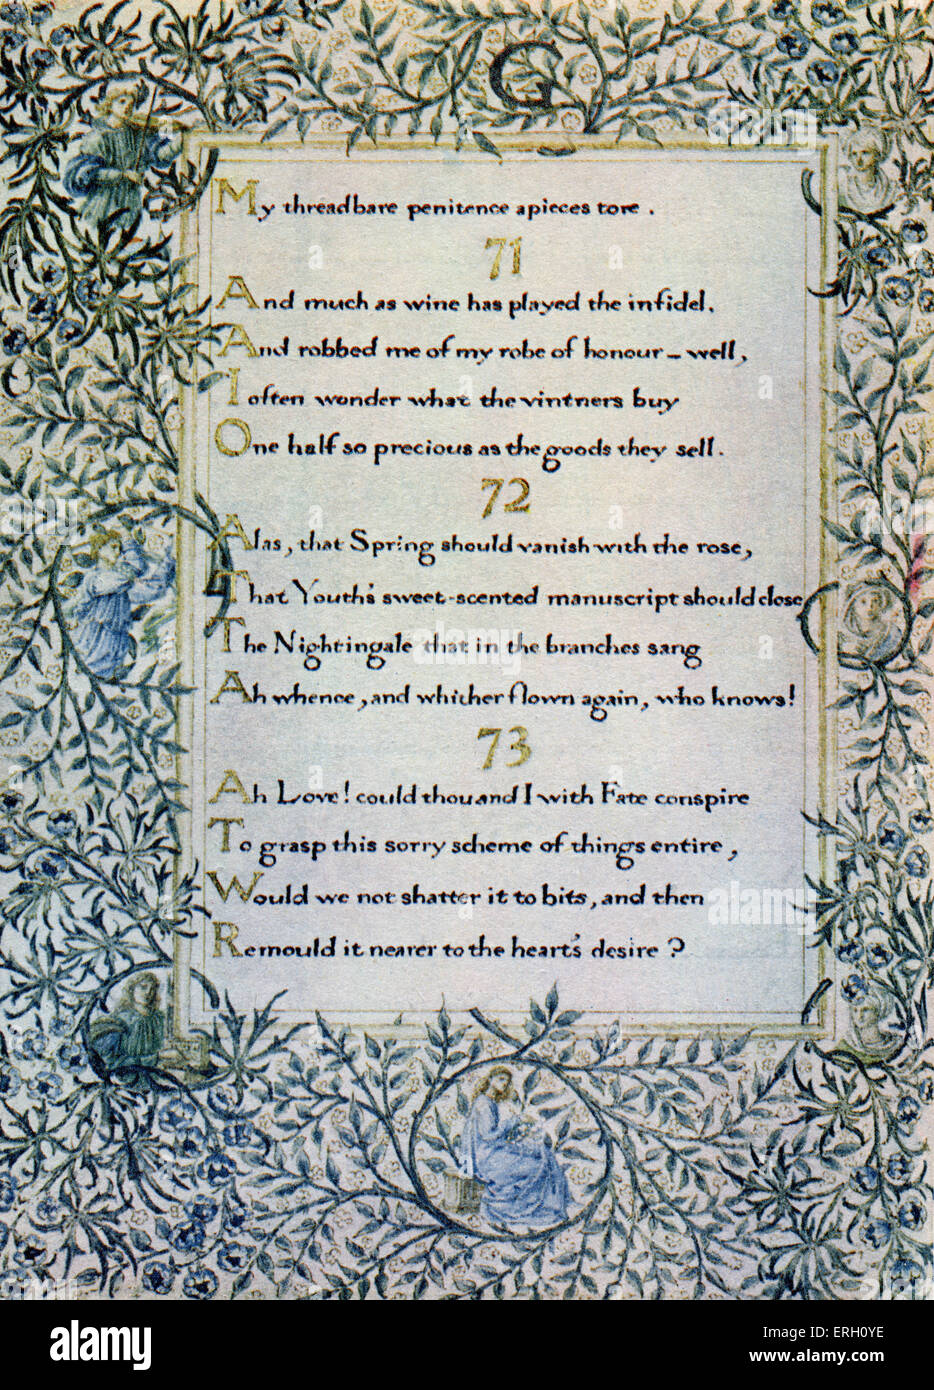 G
My threadbare penitence apieces tore.
71
And much as wine has played the infidel,
And robbed me of my robe of honour – well,
I often wonder what the vintners buy
One half so precious as the goods they sell.
72
Alas, that Spring should vanish with the rose,
That Youth's sweet-scented manuscript should close
The Nightingale that in the branches sang
Ah whence, and whither flown again, who knows!
73
Ah Love! could thou and I with Fate conspire
To grasp this sorry scheme of things entire,
Would we not shatter it to bits, and then
Remould it nearer to the heart's desire?
alamy
Image ID: ERH0YE
www.alamy.com